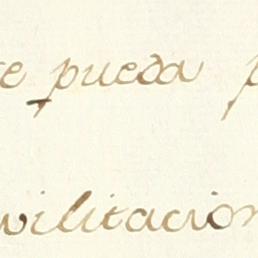 e pueda p
vilitacion